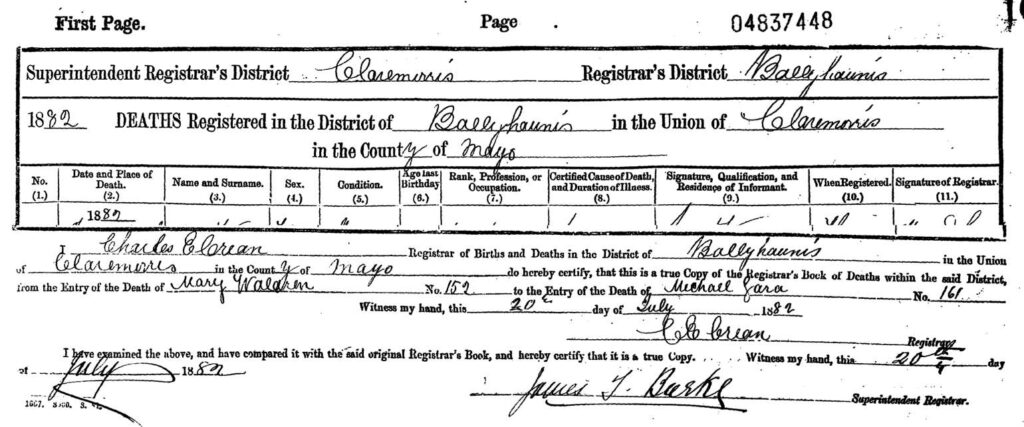 First Page. Page 04837448
Superintendent Registrar's District Claremorris Registrar's District Ballyhaunis
1882 DEATHS Registered in the District of Ballyhaunis in the Union of Claremorris
in the County of Mayo
No. (1.) Date and Place of Death. (2.) Name and Surname. (3.) Sex. (4.) Condition. (5.) Age last Birthday (6.) Rank, Profession, or Occupation. (7.) Certified Cause of Death, and Duration of Illness. (8.) Signature, Qualification, and Residence of Informant. (9.) When Registered. (10.) Signature of Registrar. (11.)
1882
I Charles E Crean Registrar of Births and Deaths in the District of Ballyhaunis in the Union
of Claremorris in the County of Mayo do hereby certify, that this is a true Copy of the Registrar's Book of Deaths within the said District,
from the Entry of the Death of Mary Waldren No. 152 to the Entry of the Death of Michael No. 161
Witness my hand, this 20th day of July 1882
C E Crean Registrar
I have examined the above, and have compared it with the said original Registrar's Book, and hereby certify that it is a true Copy. Witness my hand, this 20th day
of July 1882
James T. Burke Superintendent Registrar.